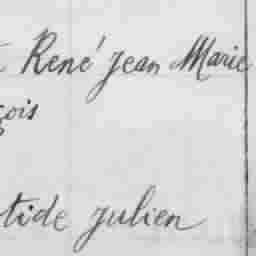 René Jean Marie
çois
tide julien